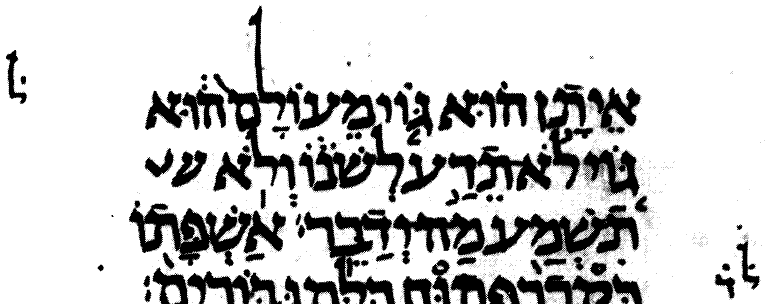 אֵיתָן הוּא גּוֹי מֵעוֹלָם הוּא
גּוֹי לֹא תֵדַע לְשֹׁנוֹ וְלֹא
תִשְׁמַע מַה יְדַבֵּר׃ אַשְׁפָּתוֹ
כְּקֶבֶר פָּתוּחַ כֻּלָּם גִּבּוֹרִים׃